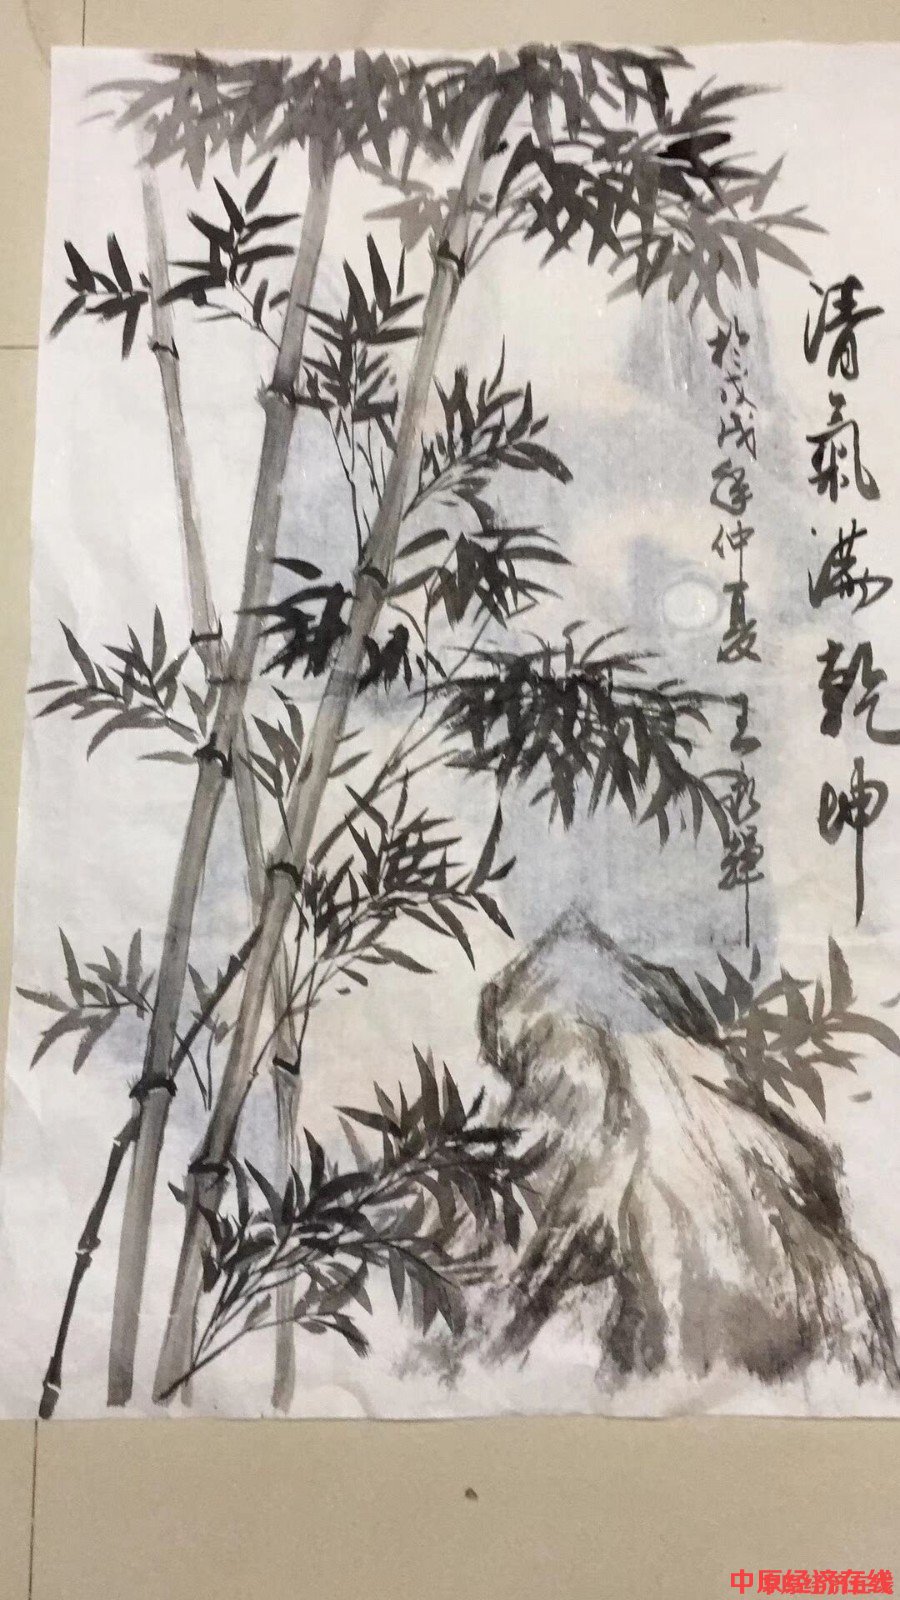 清氣滿乾坤
於戊戌年仲夏 王永輝
中原经济在线